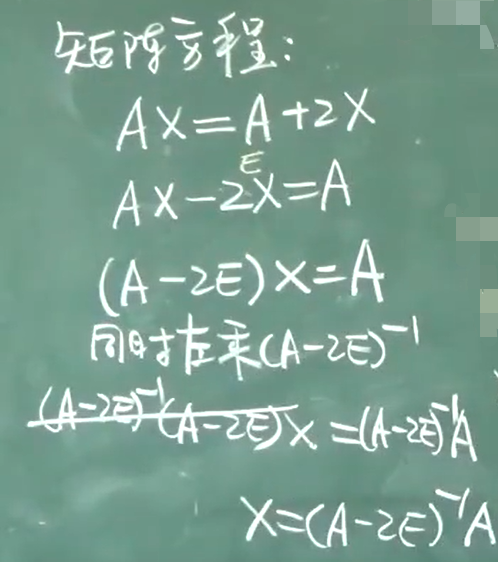 矩阵方程:
AX=A+2X
AX-2EX=A
(A-2E)X=A
同时左乘(A-2E)⁻¹
(A-2E)⁻¹(A-2E)X=(A-2E)⁻¹A
X=(A-2E)⁻¹A